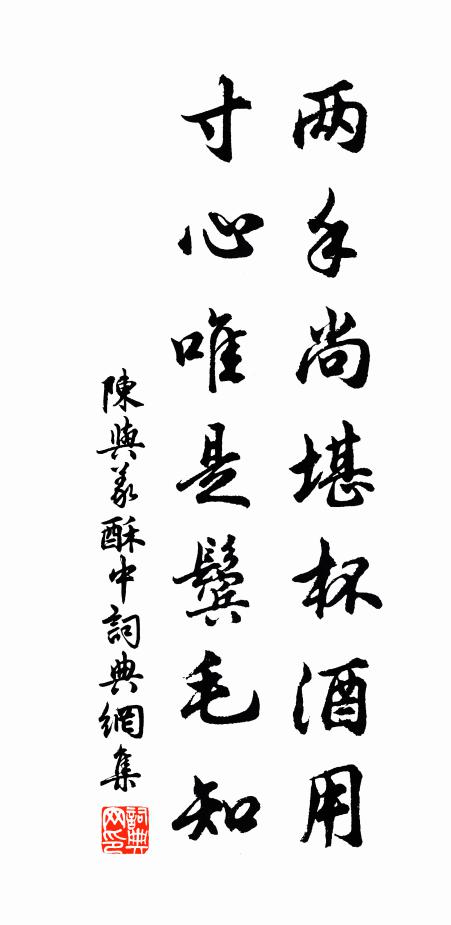 两手尚堪杯酒用
寸心唯是鬓毛知
陳與义酥中詞典網集
詞典网印